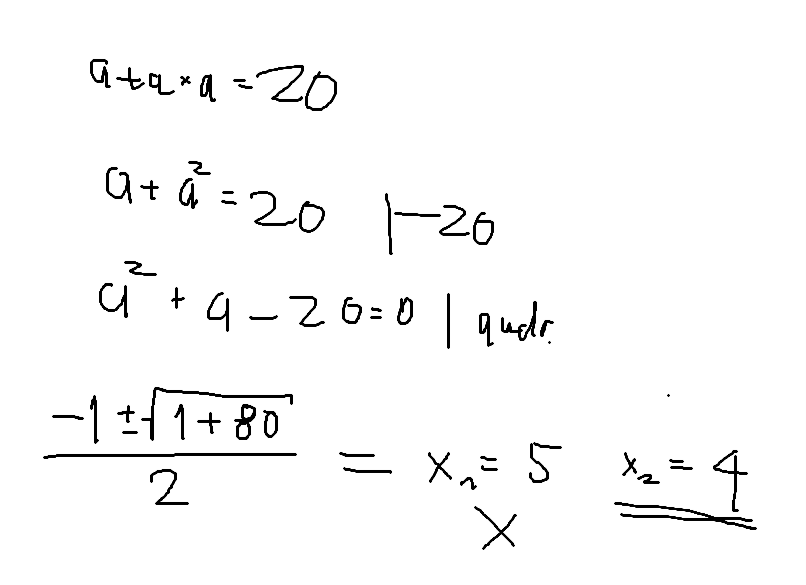 a+a×a=20
a+a²=20 |-20
a²+a-20=0 | quadr.
-1±√1+80
2
= x₁=5 x₂=4
X